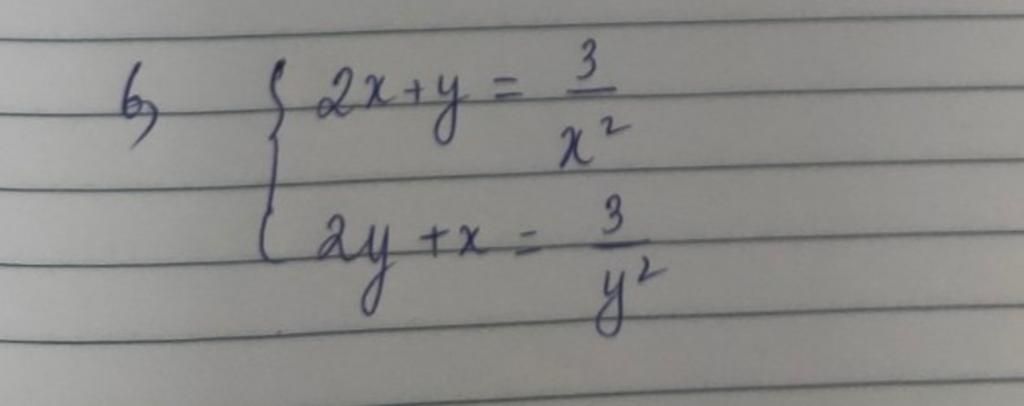 b, { 2x+y = 3/x²
2y+x = 3/y²